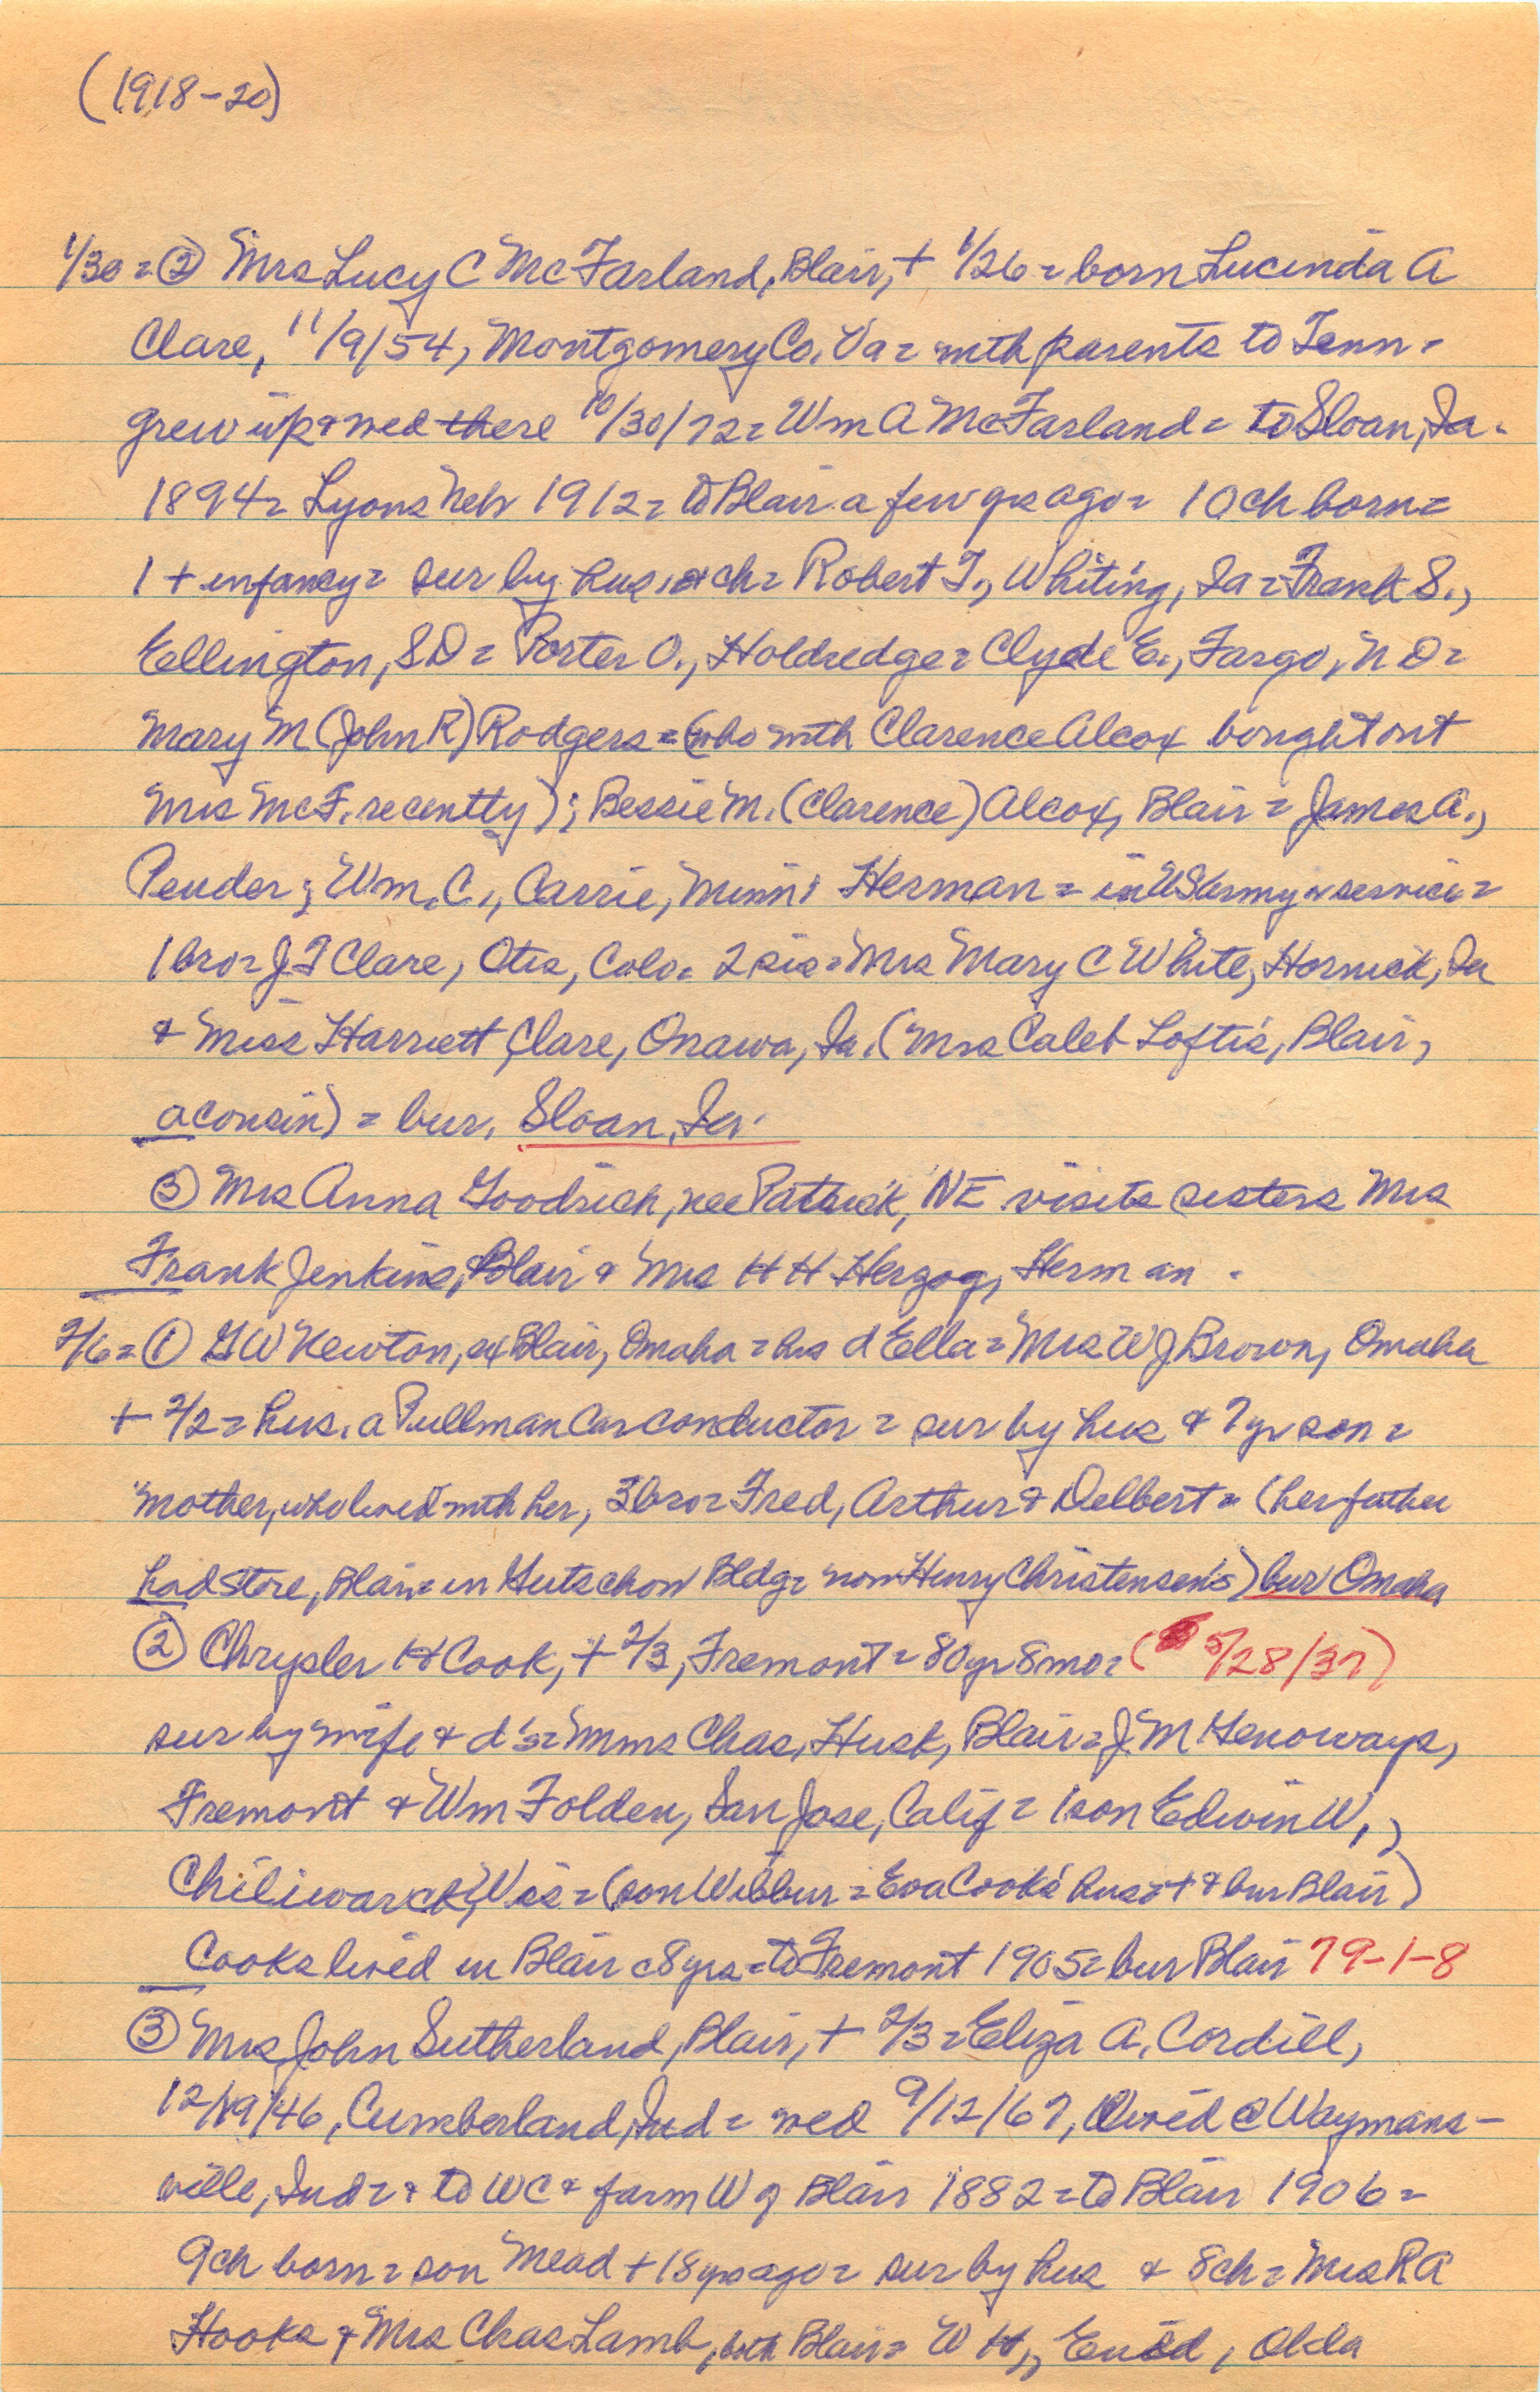 (1918-20)
1/30 = ② Mrs Lucy C McFarland, Blair, + 1/26 = born Lucinda A
Clare, 11/9/54, Montgomery Co, Va = with parents to Tenn =
grew up & wed there 10/30/72 = Wm A McFarland = to Sloan, Ia.
1894 = Lyons Neb 1912 = to Blair a few yrs ago = 10 ch born =
1 + infancy = sur by hus, & ch = Robert T., Whiting, Ia = Frank S.,
Ellington, SD = Porter O., Holdredge = Clyde E., Fargo, N D =
Mary M (John R) Rodgers = (who with Clarence Alcox bought out
Mrs McF. recently); Bessie M. (Clarence) Alcox, Blair = James A.,
Pender; Wm. C., Carrie, Minn; Herman = in US Army service =
1 bro = J T Clare, Otis, Colo = 2 sis = Mrs Mary C White, Hornick, Ia
& Miss Harriett Clare, Onawa, Ia. (Mrs Caleb Loftis, Blair,
a cousin) = bur. Sloan, Ia.
③ Mrs Anna Goodrich, nee Patrick, NE visits sisters Mrs
Frank Jenkins, Blair & Mrs H H Herzog, Herman.
2/6 = ① G W Newton, ex Blair, Omaha = his d Ella = Mrs W J Brown, Omaha
+ 2/2 = hus. a Pullman Car conductor = sur by hus & 7 yr son =
mother, who lived with her, 3 bro = Fred, Arthur & Delbert = (her father
had store, Blair = in Gutschow Bldg = now Henry Christensen's) bur Omaha
② Chrysler H Cook, + 2/3, Fremont = 80 yr 8 mo = (5/28/37)
sur by wife & d's = Mms Chas, Husk, Blair = J M Henoways,
Fremont & Wm Folden, San Jose, Calif = 1 son Edwin W.,
Chiliwarck, Wis = (son Wilbur = Eva Cook's hus = + & bur Blair)
Cooks lived in Blair c8 yrs = to Fremont 1905 = bur Blair 79-1-8
③ Mrs John Sutherland, Blair, + 2/3 = Eliza A. Cordill,
12/19/46, Cumberland, Ind = wed 9/12/67, lived @ Waymans-
ville, Ind = & to WC & farm W of Blair 1882 = to Blair 1906 =
9 ch born = son Mead + 18 yrs ago = sur by hus & 8 ch = Mrs R A
Hooks & Mrs Chas Lamb, both Blair = W H., Enid, Okla